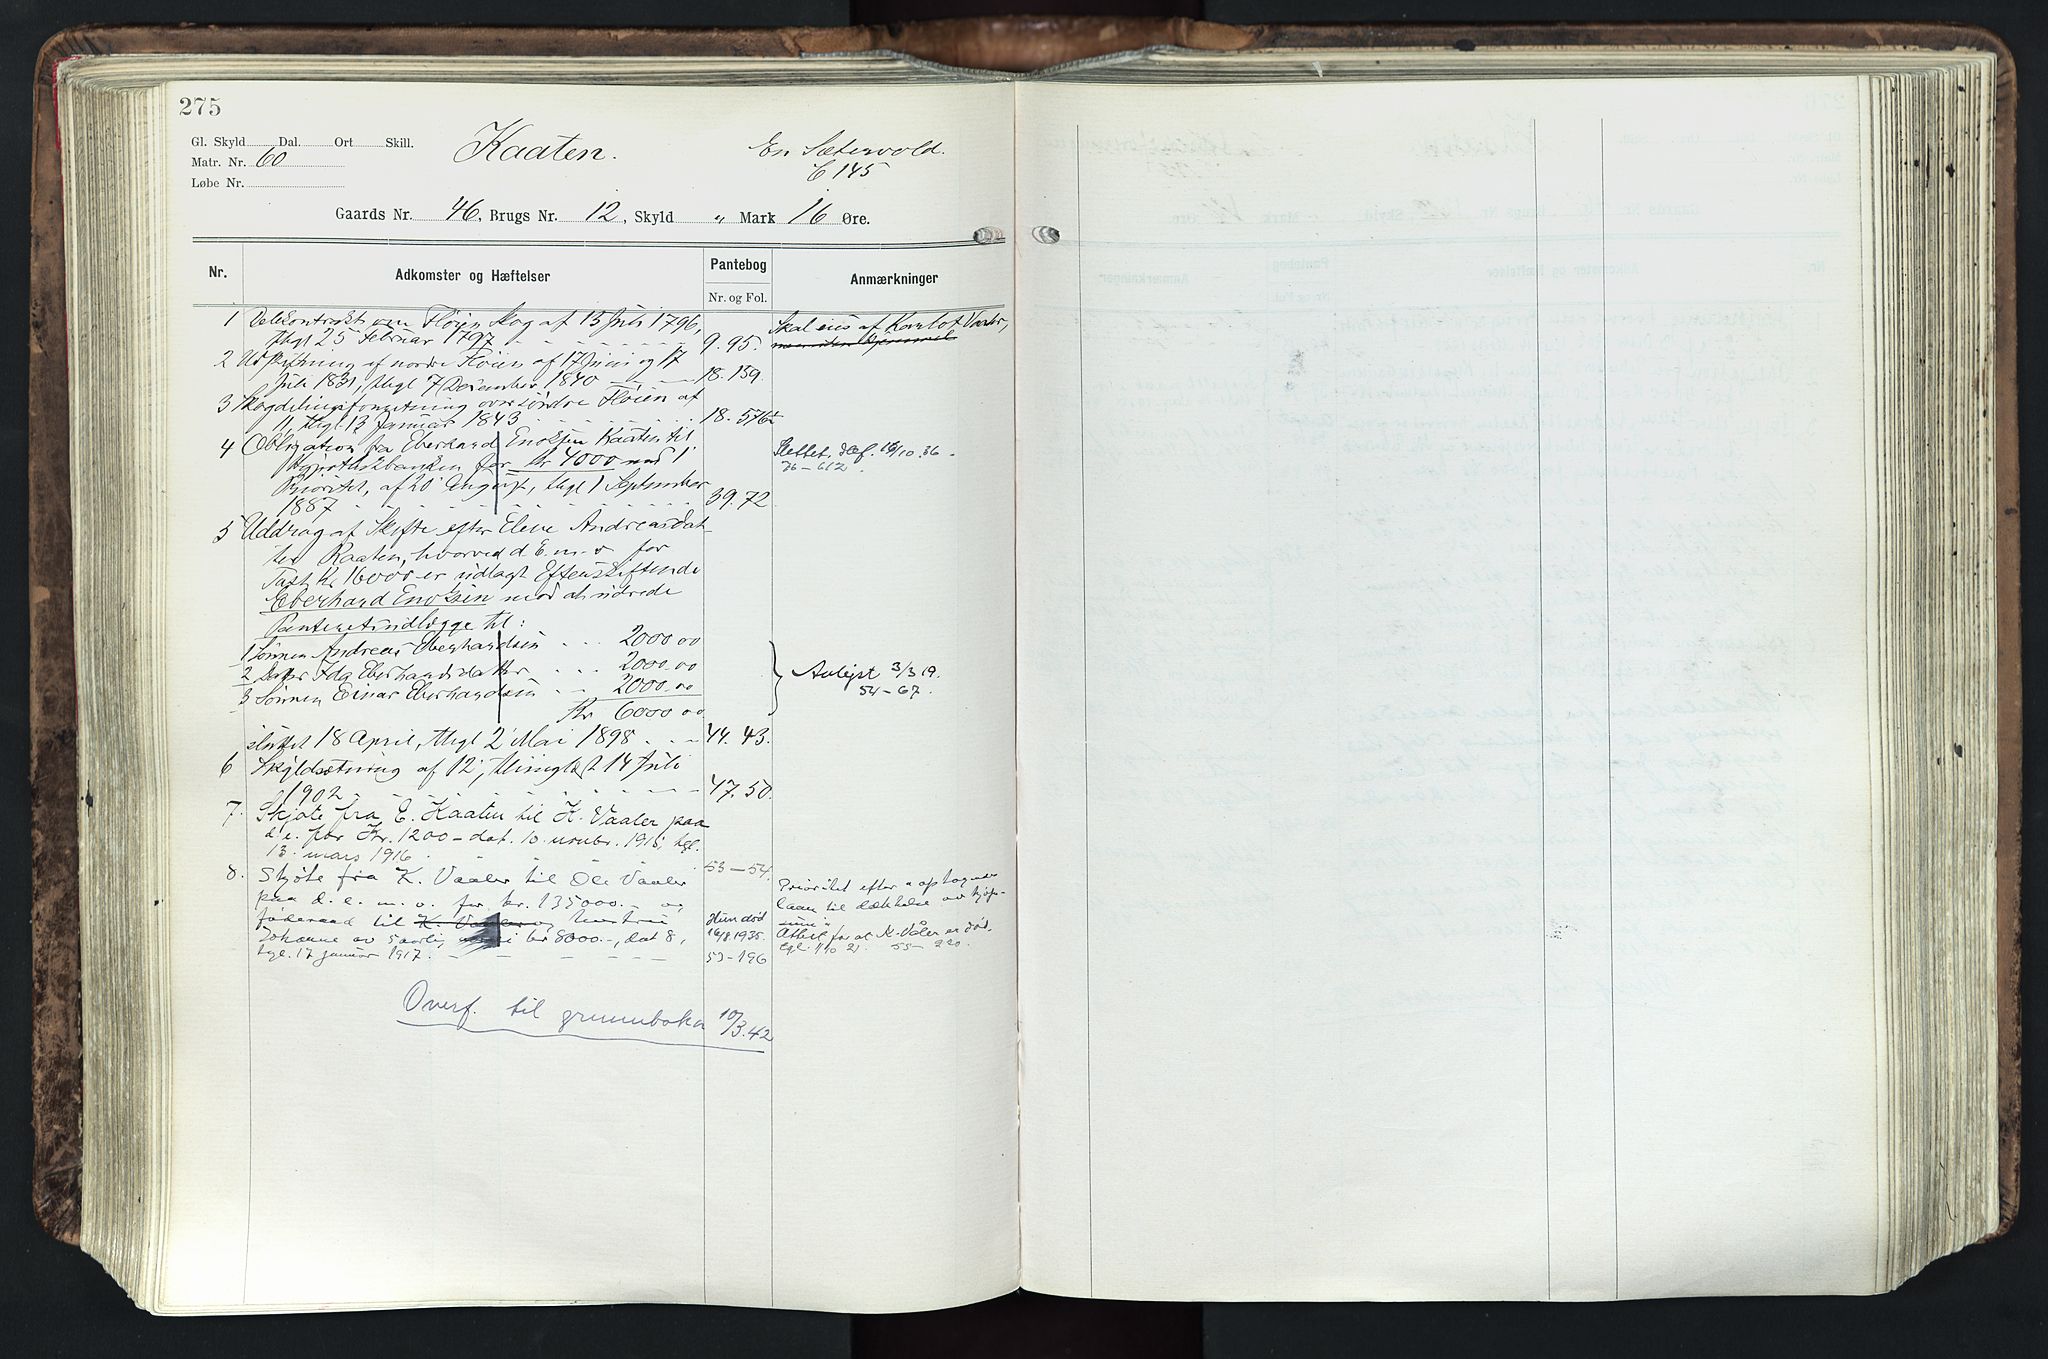 275
Gl. Skyld Dal. Ort Skill.
Matr. Nr. 60
Løbe Nr.
Kaaten.
En Sætervold.
C 145
Gaards Nr. 46, Brugs Nr. 12, Skyld " Mark 16 Øre.
Nr. Adkomster og Hæftelser Pantebog Nr. og Fol. Anmærkninger
1 Delekontrakt om Fløien Skog af 15 Juli 1796,
thgl 25 Februar 1797 9.95.
Skal eies af Vaaler,
2 Udskiftning af nordre Fløien af 17 Juni og 17
Juli 1831, thgl 7 December 1840 18.139.
3 Skogdelingsforretning over søndre Fløien af
11, thgl 13 Januar 1843 18.576
4 Obligation fra Eberhard Enoksen Kaaten til
Hypothekbanken for Kr 4000 med 1
Prioritet, af 20 August, thgl 1 September
1887 39.72
Slettet 16/10 36
36-612.
5 Uddrag af Skifte efter Elene Andreasdat-
ter Kaaten, hvorved d. E. m. v. for
Taxt Kr 16000 er udlagt Efterskiftende
Eberhard Enoksen mod at udrede
Panteretsudlægge til:
1 Sønnen Andreas Eberhardsen 2000.00
2 Datr Ida Eberhardsdatter 2000.00
3 Sønnen Einar Eberhardsen 2000.00
Kr 6000.00
Avlyst 3/3 19.
54-67.
sluttet 18 April, thgl 2 Mai 1898 44.43.
6 Skyldsætning af 12, thinglæst 14 Juli
1902 47.50.
7. Skjøte fra E. Kaaten til K. Vaaler paa
d. e. for Kr. 1200 - dat. 10 novbr. 1915, tgl.
13. mars 1916 53-54.
8. Skjøte fra K. Vaaler til Ole Vaaler
paa d. e. m. v. for kr. 135000.- og
føderaad til K. Vaaler og hustru
Johanne av 5 aarlig værdi kr 8000.-, dat 8,
tgl. 17 januar 1917. 53-196
Hun død
16/8 1935.
Prioritet efter optagende
laan til dækkelse av kjøpe-
sum
Attest for at K. Våler er død.
tgl. 1/10 21. 55-220.
Overf. til grunnboka 10/3.42